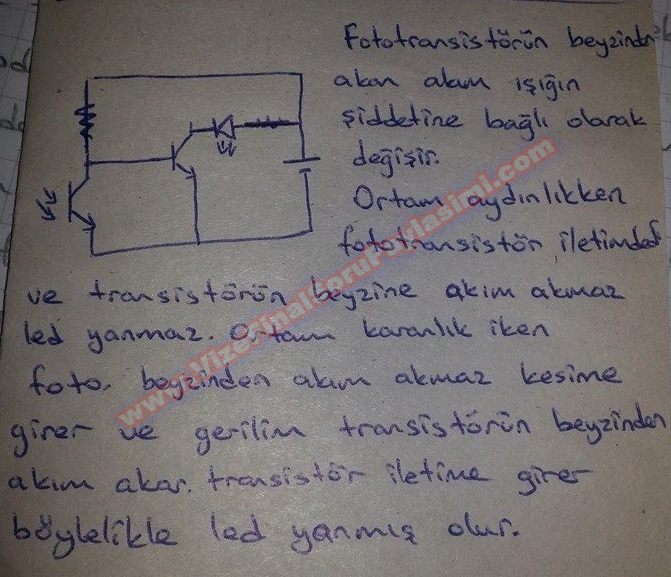 Fototransistörün beyzinden
akan akım ışığın
şiddetine bağlı olarak
değişir.
Ortam aydınlıkken
fototransistör iletimded
ve transistörün beyzine akım akmaz
led yanmaz. Ortam karanlık iken
foto. beyzinden akım akmaz kesime
girer ve gerilim transistörün beyzinden
akım akar. transistör iletime girer
böylelikle led yanmış olur.
www.VizeFinalSoruPaylasimi.com